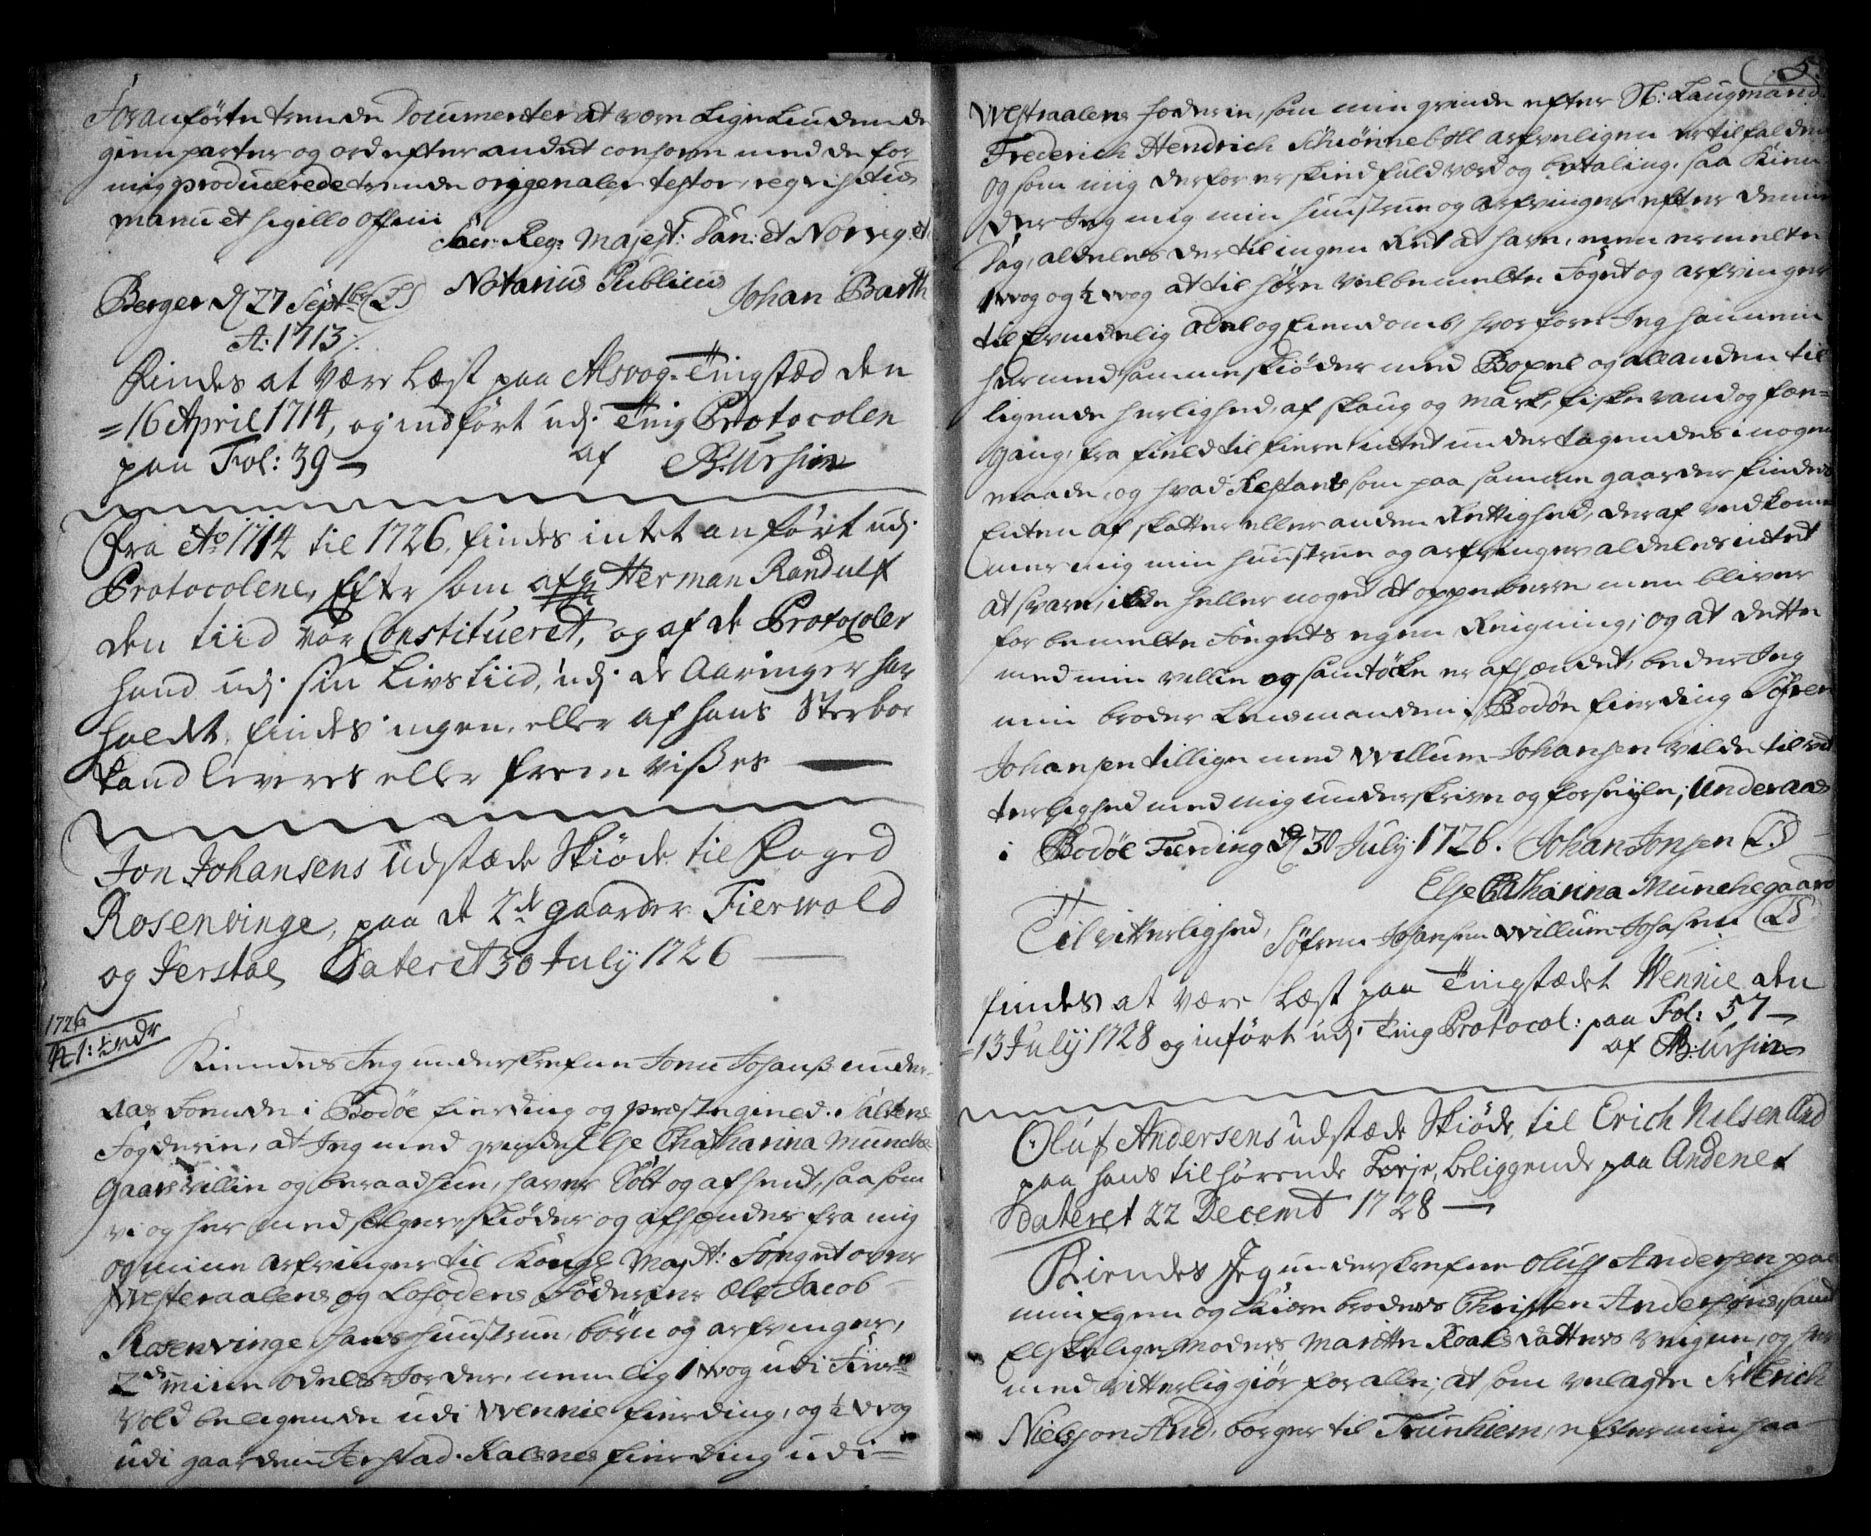 For anførte trende Documenter at være Ligeliudende
gienparter og ord efter andet conform med de for
mig producerede trende origenaler testor, reqvisitus
manu et sigillo officii
Sacr: Reg: Majest: Dan: et Norveg: et
Notarius Publicus Johan Barth
Bergen d 27 Septbr LS
A: 1713
Findes at være Læst paa Alsvog-Tingstæd den
=16 April 1714, og indført udj. Ting Protocolen
paa Fol: 39 af B: Ursin
Fra Ao 1714 til 1726, findes intet anført udj.
Protocolene, Efter som Herman Randulf
den tiid var Constitueret, og af de Protocoler
hand udj. sin Livstiid, udj. de Aaringer har
holdt, findes ingen, eller af hans Sterboe
kand leveres eller frem vißes
Jon Johansens udstæde Skiøde til Foged
Rosenvinge, paa de 2de gaarder Fierwold
og Jerstad, Dateret 30 July 1726
1726
Kiendes Jeg underskrefne Jonn Johanß
boende i Bodøe fierding og præstegield, Saltens
Fogderie, at Jeg med qvinde Else Chatharina Munche
gaars villie og beraadhun, haver Solt og afhendt, saa som
vi og her med selger, skiøder og afhænder fra mig
og mine arfvinger til Kongl Mayst: Fouget over
Westeraalens og Lofodens Foderier Ole Jacob
Rosenvinge hans hustrue, børn og arfvinger,
2de mine odels Jorder, nemlig 1 wog udi Fier=
vold beligende udi Wennie fierding, og ½ wog
udi gaarden Jerstad, Raesnes fierding udi=
5.
Westraalens foderie, som min qvinde efter Sl: Laugmand
Frederich Hendrich Schiønneboll arfveligen er tilfalden
og som mig derfor er skied fuldværd og betaling, saa kien
der Jeg mig min hustrue og arfvinger efter denne
Dag, aldeles der til ingen Ret at have, men ermelte
1 wog og ½ wog at tilhøre velbemelte Foget og arfvinger
til Evindelig odel og Eiendomb, hvorfore Jeg hannem
hermed samme skiøder med Boxel og all anden til
ligende herlighed, af skoug og mark, fiske vand og fæe=
gang, fra field til fiere intet undertagendes i nogen
maade, og hvad Restants som paa samme gaarder findes
Enten af skatter eller anden Rettighed, deraf vedkom
mer mig min hustrue og arfvinger aldeles intet
at svare, ikke heller noget at oppebærre men bliver
for bemelte Fougets egen Reigning; og at dette
med min villie og samtøcke er afhændet, beder Jeg
min broder Lensmanden i Bodøe fierding Søfren
Johansen tillige med Willum Johansen vilde til vit
terlighed med mig underskrive og forseigle; Underaas
i Bodøe Fierding d 30 July 1726. Johan Jonsen LS
Else Catharina Munchegaard
Til vitterlighed, Søfren Johansen Willum Johansen LS
findes at være Læst paa Tingstædet Wennie den
=13 July 1728 og inført udj Ting Protocol: paa Fol: 57
af B: Ursin
Oluf Andersens udstæde Skiøde, til Erich Nilsen And
paa hans tilhørende Eeje, beliggende paa Andenes
Dateret 22 Decembr 1728
Kiendes Jeg underskrefne Oluff Andersen paa
min Egen og kiære broders Christen Andersens, samt
Elskelige Moders Marethe Roals datters veigne, og her
med vitterlig giør for alle; at som velagte Sr Erich
Nielsson And, borger til Trunhiem, efter min saa